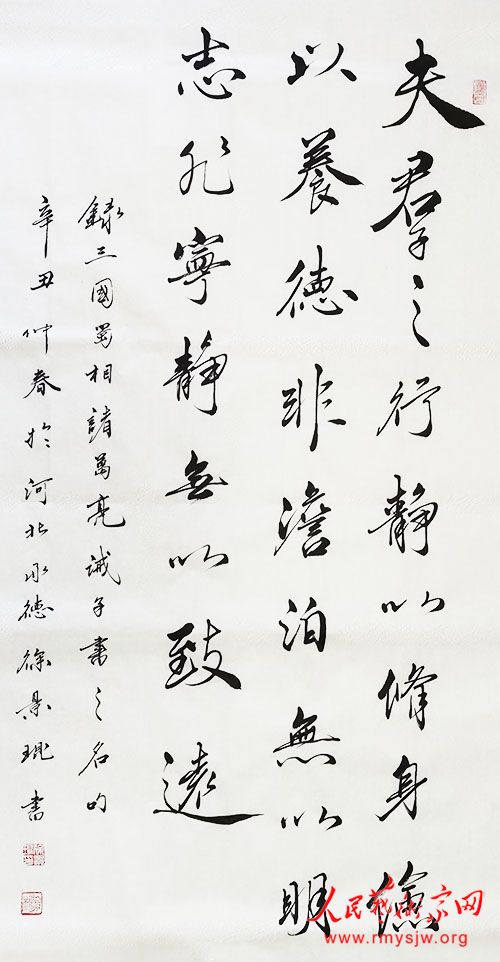 夫君子之行靜以脩身儉
以養德非澹泊無以明
志非寧靜無以致遠
錄三國蜀相諸葛亮誡子書之名句
辛丑仲春於河北承德徐景琨书
人民藝術家网
www.rmysjw.org